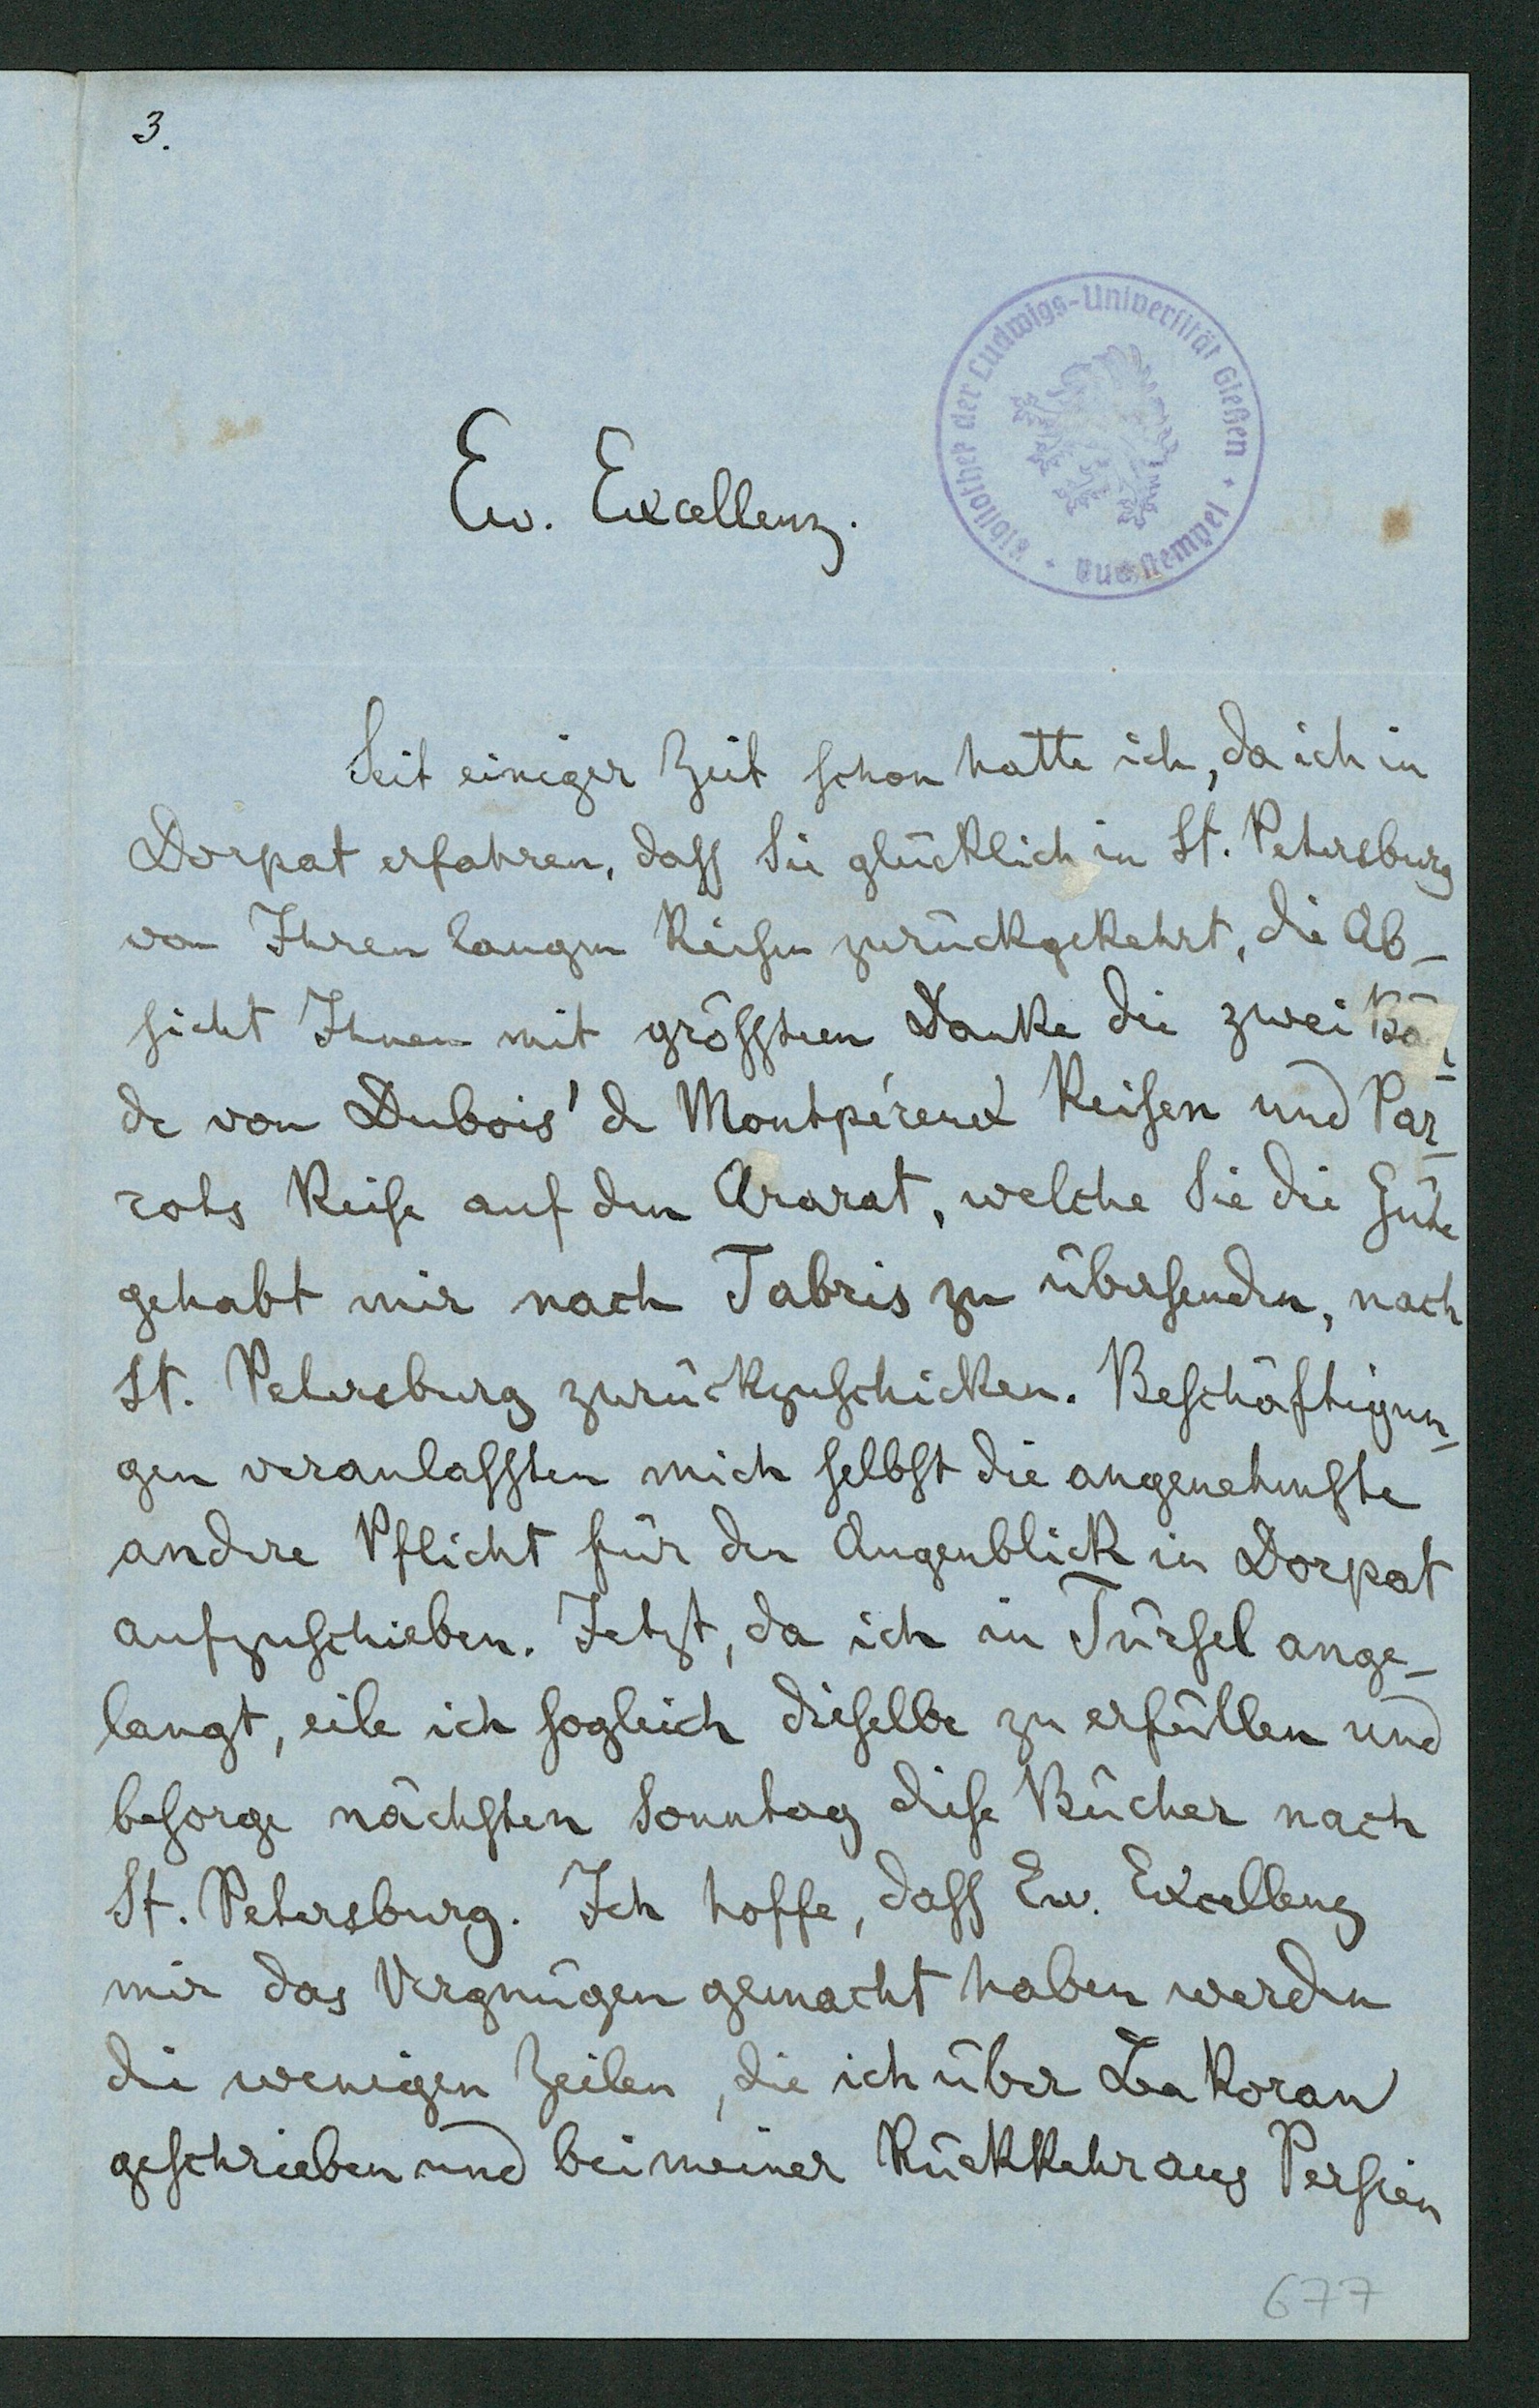 3.
Bibliothek der Ludwigs-Universität Gießen
Ew. Excellenz.
Seit einiger Zeit schon hatte ich, da ich in
Dorpat erfahren, dass Sie glücklich in St. Petersburg
von Ihren langen Reisen zurückgekehrt, die Ab-
sicht Ihnen mit grösstem Danke die zwei Bän-
de von Dubois' de Montpéreux Reisen und Par-
rots Reise auf den Ararat, welche Sie die Güte
gehabt mir nach Tabris zu übersenden, nach
St. Petersburg zurückzuschicken. Beschäftigun-
gen veranlassten mich selbst die angenehmste
andere Pflicht für den Augenblick in Dorpat
aufzuschieben. Jetzt, da ich in Türsel ange-
langt, eile ich sogleich dieselbe zu erfüllen und
besorge nächsten Sonntag diese Bücher nach
St. Petersburg. Ich hoffe, dass Ew. Excellenz
mir das Vergnügen gemacht haben werden
die wenigen Zeilen, die ich über Lenkoran
geschrieben und bei meiner Rückkehr aus Persien
677